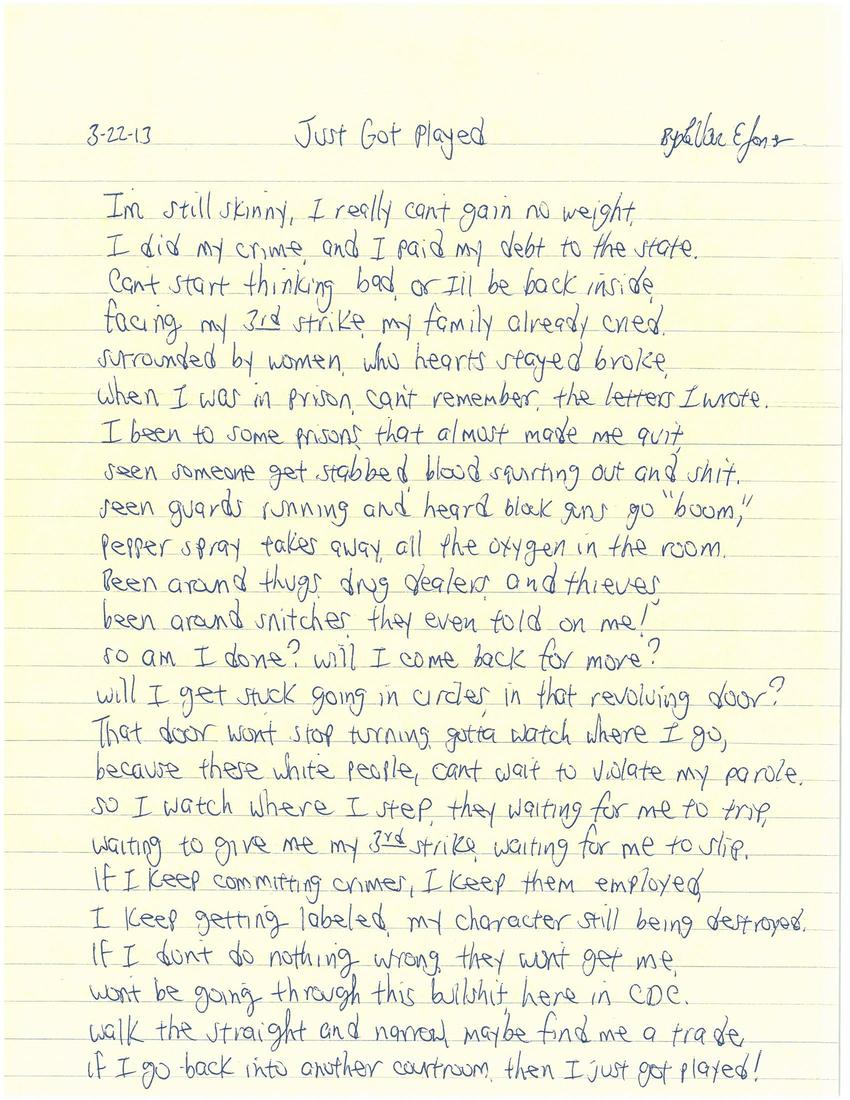 3-22-13 Just Got Played By LaVar E Jones
Im still skinny, I really cant gain no weight,
I did my crime, and I paid my debt to the state.
Cant start thinking bad, or Ill be back inside,
facing my 3rd strike, my family already cried.
surrounded by women, who hearts stayed broke,
when I was in prison, can't remember, the letters I wrote.
I been to some prisons, that almost made me quit,
seen someone get stabbed, blood squirting out and shit.
seen guards running and heard block guns go "boom,"
pepper spray takes away, all the oxygen in the room.
Been around thugs, drug dealers, and thieves,
been around snitches, they even told on me!
so am I done? will I come back for more?
will I get stuck going in circles, in that revolving door?
That door wont stop turning, gotta watch where I go,
because these white people, cant wait to violate my parole.
so I watch where I step, they waiting for me to trip,
waiting to give me my 3rd strike, waiting for me to slip.
If I keep committing crimes, I keep them employed,
I keep getting labeled, my character still being destroyed.
If I dont do nothing wrong, they wont get me,
wont be going through this bullshit, here in CDC.
walk the straight and narrow, maybe find me a trade,
if I go back into another courtroom, then I just got played!